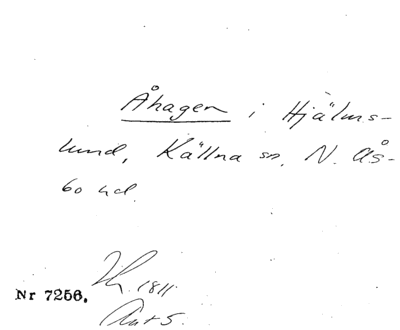 Åhagen i Hjälms-
lund, Källna sn, N. Ås-
bo hd.
1811
Nr 7256.
Ant S.